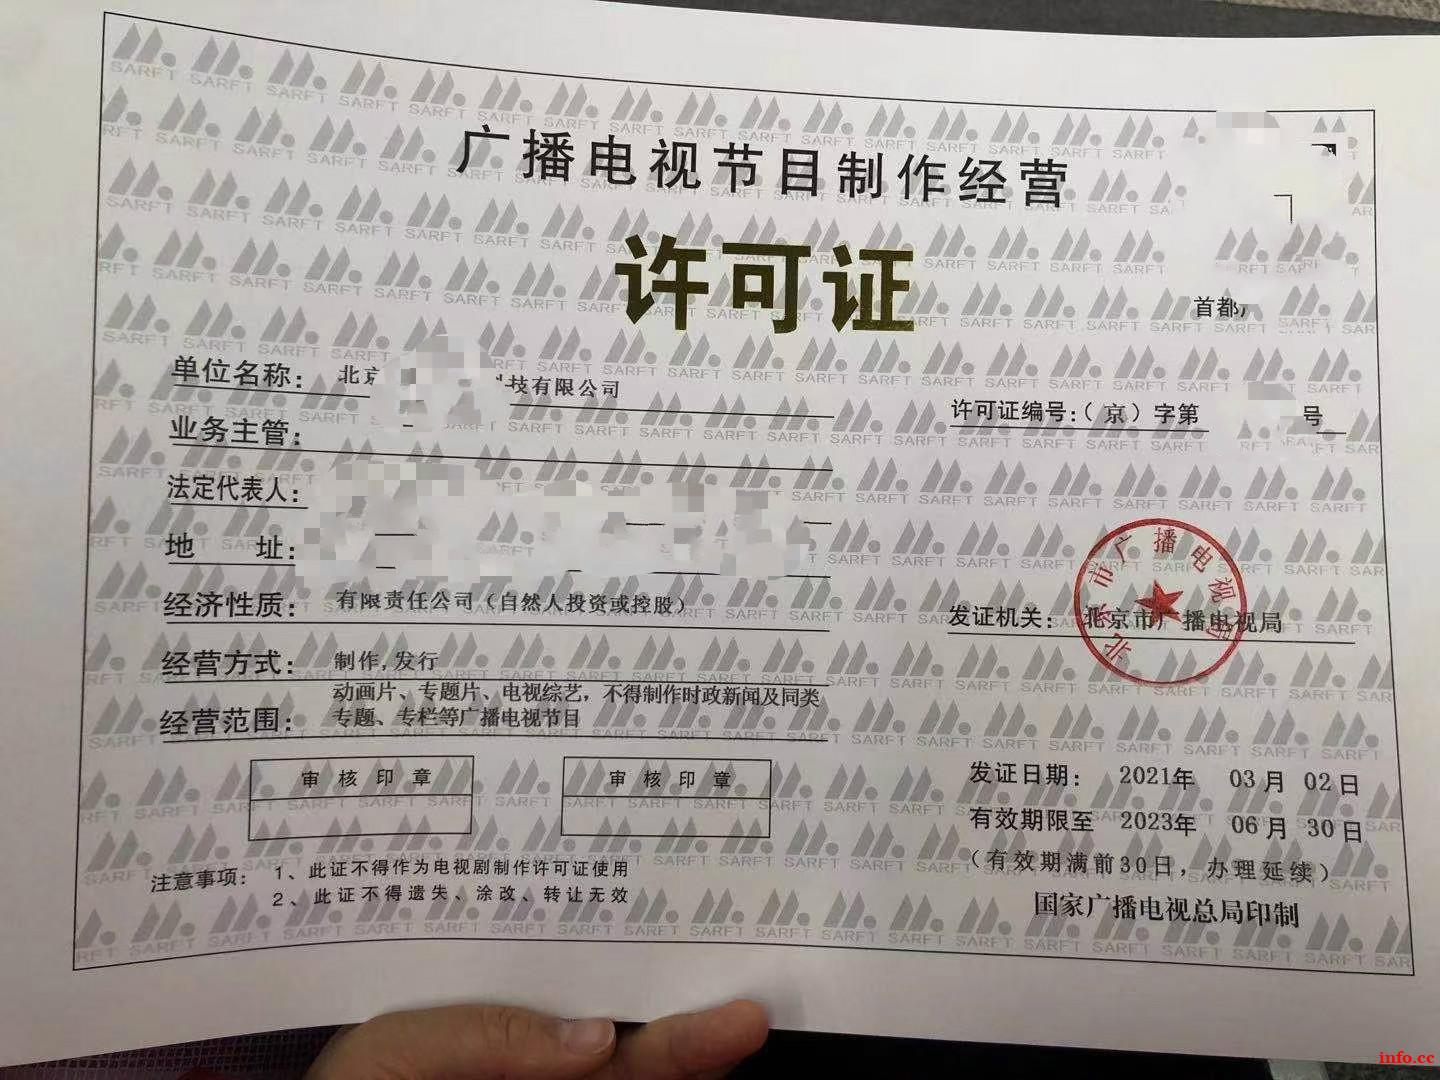 广播电视节目制作经营
许可证
首都
单位名称： 北京 科技有限公司
许可证编号：（京）字第 号
业务主管：
法定代表人：
地 址：
经济性质： 有限责任公司（自然人投资或控股）
发证机关： 北京市广播电视局
北京市广播电视局
经营方式： 制作,发行
经营范围： 动画片、专题片、电视综艺，不得制作时政新闻及同类
专题、专栏等广播电视节目
审核印章
审核印章
发证日期： 2021年 03月 02日
有效期限至 2023年 06月 30日
（有效期满前30日，办理延续）
注意事项： 1、此证不得作为电视剧制作许可证使用
2、此证不得遗失、涂改、转让无效
国家广播电视总局印制
SARFT
info.cc